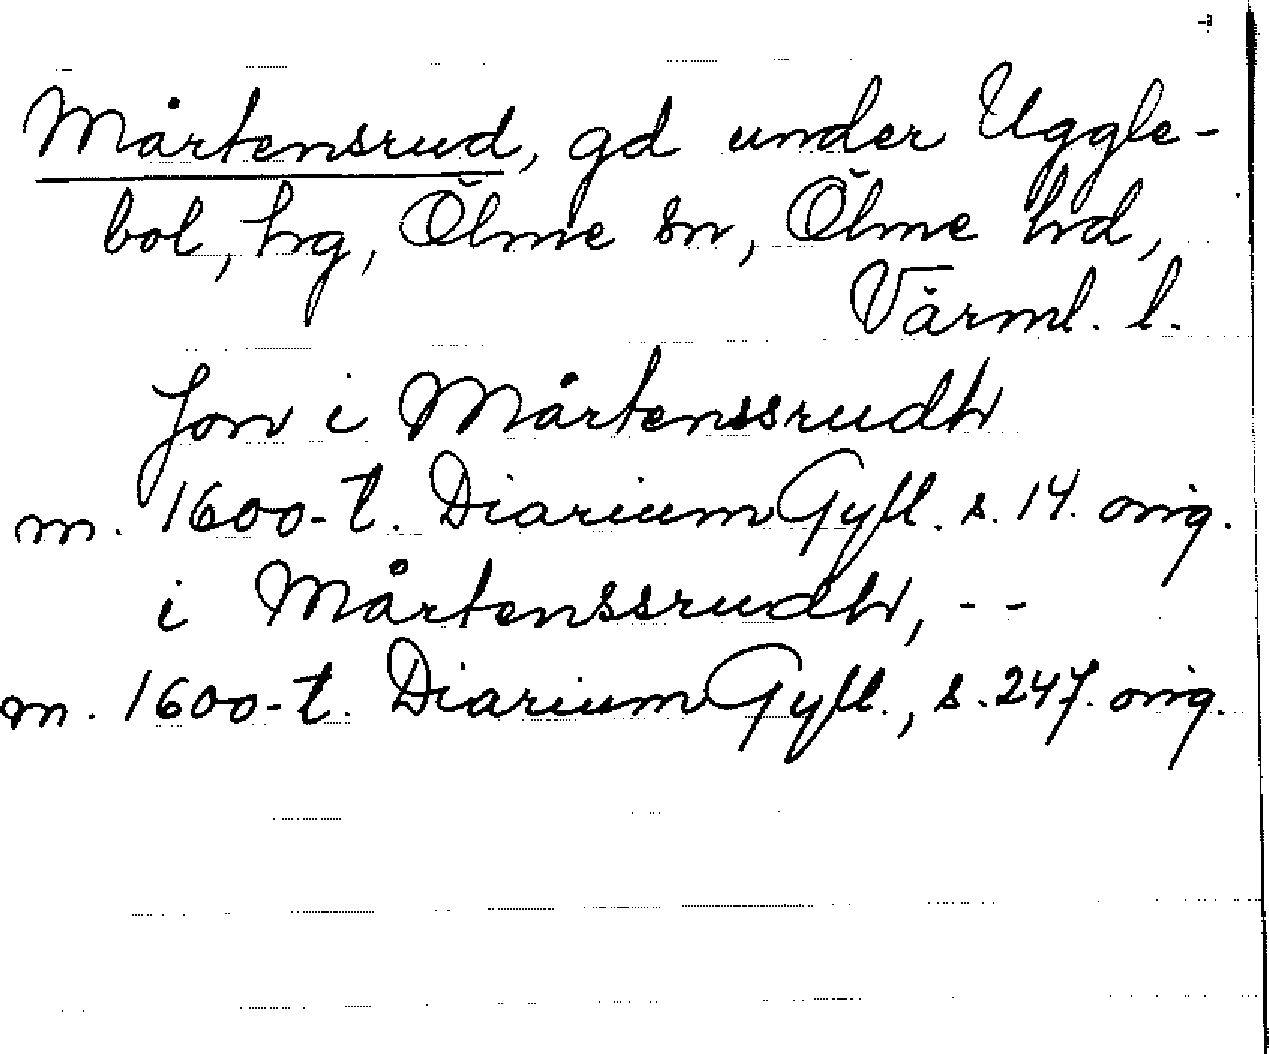 Mårtensrud, gd under Uggle-
bol, hg, Ölme sn, Ölme hd,
Värml. l.
Jon i Mårtenssrudh
m. 1600-t. Diarium Gyll. s. 14. orig.
i Mårtenssrudh, - -
m. 1600-t. Diarium Gyll., s. 247. orig.